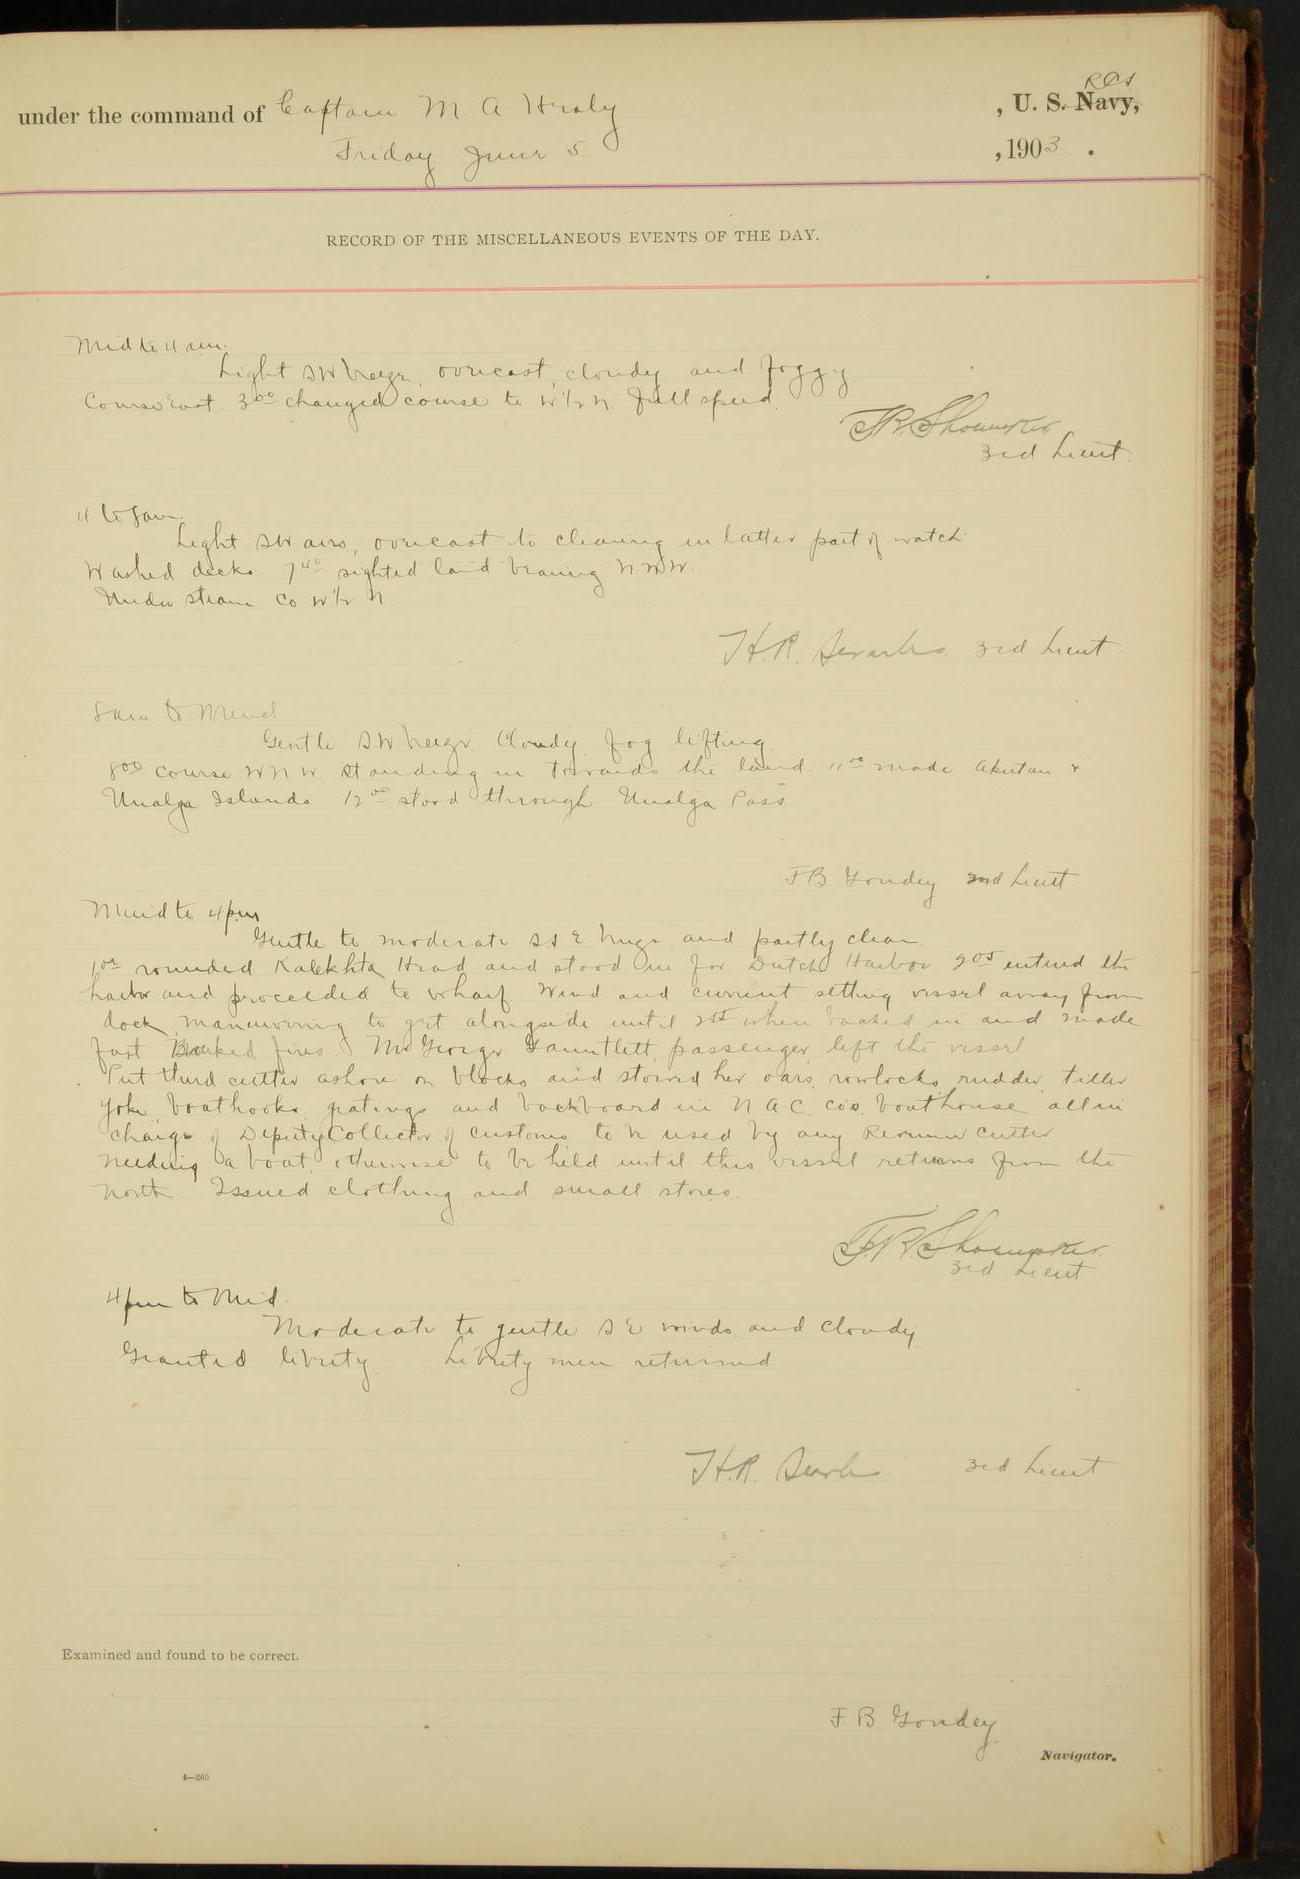 under the command of Captain M. A. Healy, U. S. Navy, RCS
Friday June 5, 1903.
RECORD OF THE MISCELLANEOUS EVENTS OF THE DAY.
Mid to 4 am.
Light SW breeze, overcast, cloudy and foggy
Course East. 3⁰⁰ changed course to W½N. full speed.
F.R. Shoemaker
3rd Lieut.
4 to 8 am.
Light SW airs, overcast to clearing in latter part of watch
Washed decks 7⁴⁰ sighted land bearing NNW.
Under steam Co W½N.
H.R. Searles 3rd Lieut.
8 am to Merid
Gentle SW breeze. Cloudy, fog lifting.
8⁰⁰ course WNW standing in towards the land. 11⁰⁰ made Akutan &
Unalga Islands 12⁰⁰ stood through Unalga Pass
F B Goudey 2nd Lieut
Merid to 4 pm
Gentle to moderate SSE breeze and partly clear.
rounded Kalekhta Head and stood in for Dutch Harbor. 2⁰⁵ entered the
harbor and proceeded to wharf. Wind and current setting vessel away from
dock, maneuvering to get alongside until when backed in and made
fast Banked fires. Mr George Gauntlett, passenger, left the vessel
Put third cutter ashore on blocks and stowed her oars, rowlocks, rudder, tiller
yoke, boathooks, gratings and backboard in N.A.C. Co's. boathouse all in
charge of Deputy Collector of customs, to be used by any Revenue Cutter
needing a boat, otherwise to be held until this vessel returns from the
north. Issued clothing and small stores.
F.R. Shoemaker
3rd Lieut
4 pm to Mid.
Moderate to gentle SE winds and cloudy
Granted liberty Liberty men returned.
H.R. Searles 3rd Lieut
Examined and found to be correct.
F B Goudey
Navigator.
4—265